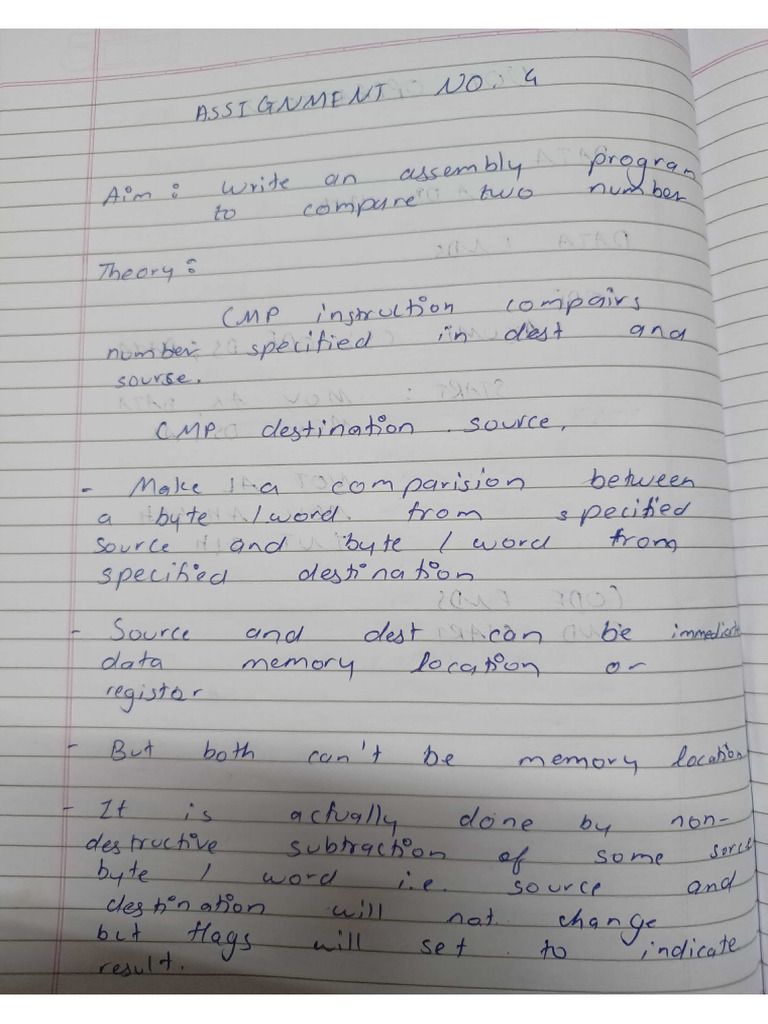 ASSIGNMENT NO. 4
Aim : write an assembly progran
to compare two number
Theory :
CMP instruction compairs
number specified in dest and
sourse.
CMP destination . source,
- Make a comparision between
a byte / word from specified
source and byte / word from
specified destination
- Source and dest can be immediate
data memory location or
registor
- But both can't be memory location
- It is actually done by non-
destructive subtraction of some sorce
byte / word i.e. source and
destination will not change
but flags will set to indicate
result.